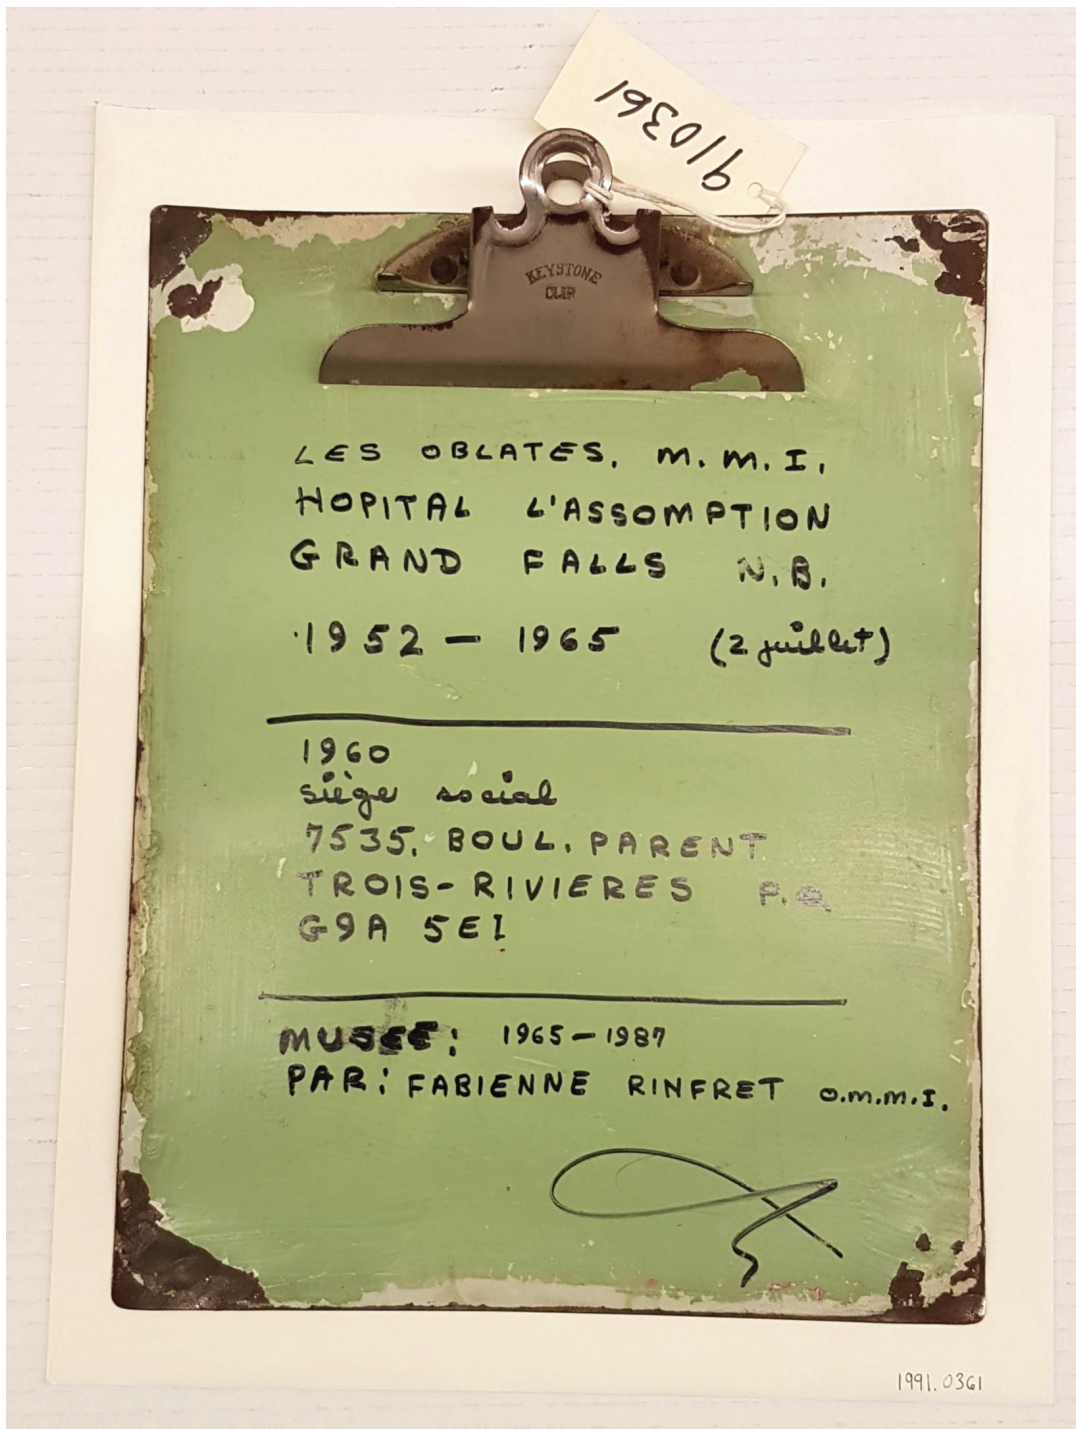 910361
KEYSTONE
CLIP
LES OBLATES. M.M.I.
HOPITAL L'ASSOMPTION
GRAND FALLS N.B.
1952 – 1965 (2 juillet)
1960
siège social
7535, BOUL. PARENT
TROIS-RIVIERES P.Q.
G9A 5E1
MUSEE: 1965–1987
PAR: FABIENNE RINFRET O.M.M.I.
1991.0361